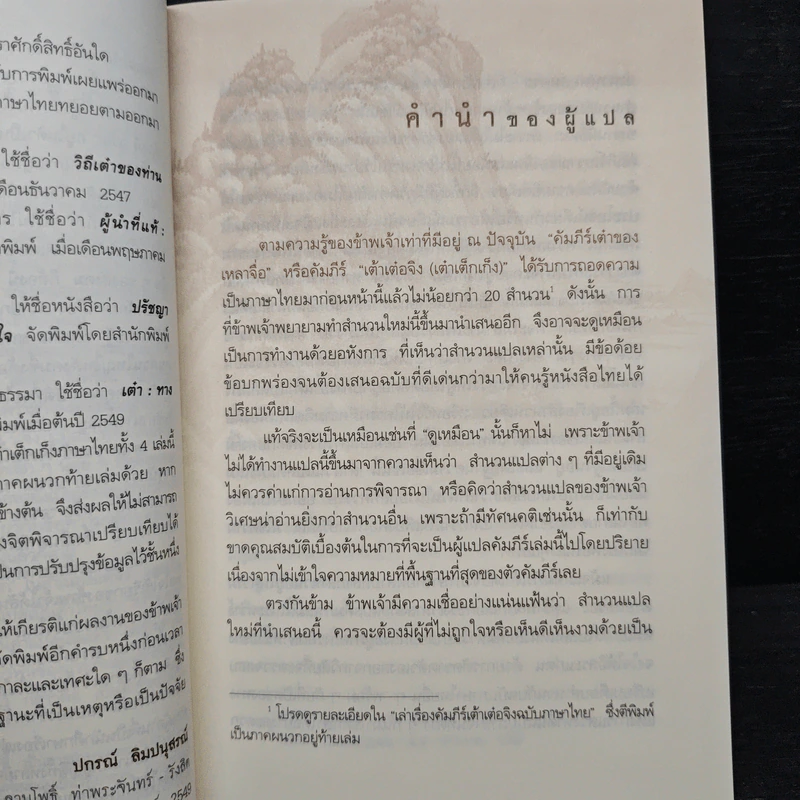 ราศักดิ์สิทธิ์อันใด
รับการพิมพ์เผยแพร่ออกมา
ภาษาไทยทยอยตามออกมา
ใช้ชื่อว่า วิถีเต๋าของท่าน
เดือนธันวาคม 2547
ใช้ชื่อว่า ผู้นำที่แท้ :
พิมพ์ เมื่อเดือนพฤษภาคม
ให้ชื่อหนังสือว่า ปรัชญา
จัดพิมพ์โดยสำนักพิมพ์
ธรรมา ใช้ชื่อว่า เต๋า : ทาง
พิมพ์เมื่อต้นปี 2549
ต๋าเต็กเก็งภาษาไทยทั้ง 4 เล่มนี้
ภาคผนวกท้ายเล่มด้วย หาก
ข้างต้น จึงส่งผลให้ไม่สามารถ
จิตพิจารณาเปรียบเทียบได้
เป็นการปรับปรุงข้อมูลไว้ชั้นหนึ่ง
ให้เกียรติแก่ผลงานของข้าพเจ้า
จัดพิมพ์อีกคำรบหนึ่งก่อนเวลา
กาละและเทศะใด ๆ ก็ตาม ซึ่ง
ฐานะที่เป็นเหตุหรือเป็นปัจจัย
ปกรณ์ ลิมปนุสรณ์
ลานโพธิ์ ท่าพระจันทร์ - รังสิต
2549
คำนำของผู้แปล
ตามความรู้ของข้าพเจ้าเท่าที่มีอยู่ ณ ปัจจุบัน “คัมภีร์เต๋าของ
เหลาจื่อ” หรือคัมภีร์ “เต้าเต๋อจิง (เต๋าเต็กเก็ง)” ได้รับการถอดความ
เป็นภาษาไทยมาก่อนหน้านี้แล้วไม่น้อยกว่า 20 สำนวน¹ ดังนั้น การ
ที่ข้าพเจ้าพยายามทำสำนวนใหม่นี้ขึ้นมานำเสนออีก จึงอาจจะดูเหมือน
เป็นการทำงานด้วยอหังการ ที่เห็นว่าสำนวนแปลเหล่านั้น มีข้อด้อย
ข้อบกพร่องจนต้องเสนอฉบับที่ดีเด่นกว่ามาให้คนรู้หนังสือไทยได้
เปรียบเทียบ
แท้จริงจะเป็นเหมือนเช่นที่ “ดูเหมือน” นั้นก็หาไม่ เพราะข้าพเจ้า
ไม่ได้ทำงานแปลนี้ขึ้นมาจากความเห็นว่า สำนวนแปลต่าง ๆ ที่มีอยู่เดิม
ไม่ควรค่าแก่การอ่านการพิจารณา หรือคิดว่าสำนวนแปลของข้าพเจ้า
วิเศษน่าอ่านยิ่งกว่าสำนวนอื่น เพราะถ้ามีทัศนคติเช่นนั้น ก็เท่ากับ
ขาดคุณสมบัติเบื้องต้นในการที่จะเป็นผู้แปลคัมภีร์เล่มนี้ไปโดยปริยาย
เนื่องจากไม่เข้าใจความหมายที่พื้นฐานที่สุดของตัวคัมภีร์เลย
ตรงกันข้าม ข้าพเจ้ามีความเชื่ออย่างแน่นแฟ้นว่า สำนวนแปล
ใหม่ที่นำเสนอนี้ ควรจะต้องมีผู้ที่ไม่ถูกใจหรือเห็นดีเห็นงามด้วยเป็น
¹ โปรดดูรายละเอียดใน “เล่าเรื่องคัมภีร์เต้าเต๋อจิงฉบับภาษาไทย” ซึ่งตีพิมพ์
เป็นภาคผนวกอยู่ท้ายเล่ม